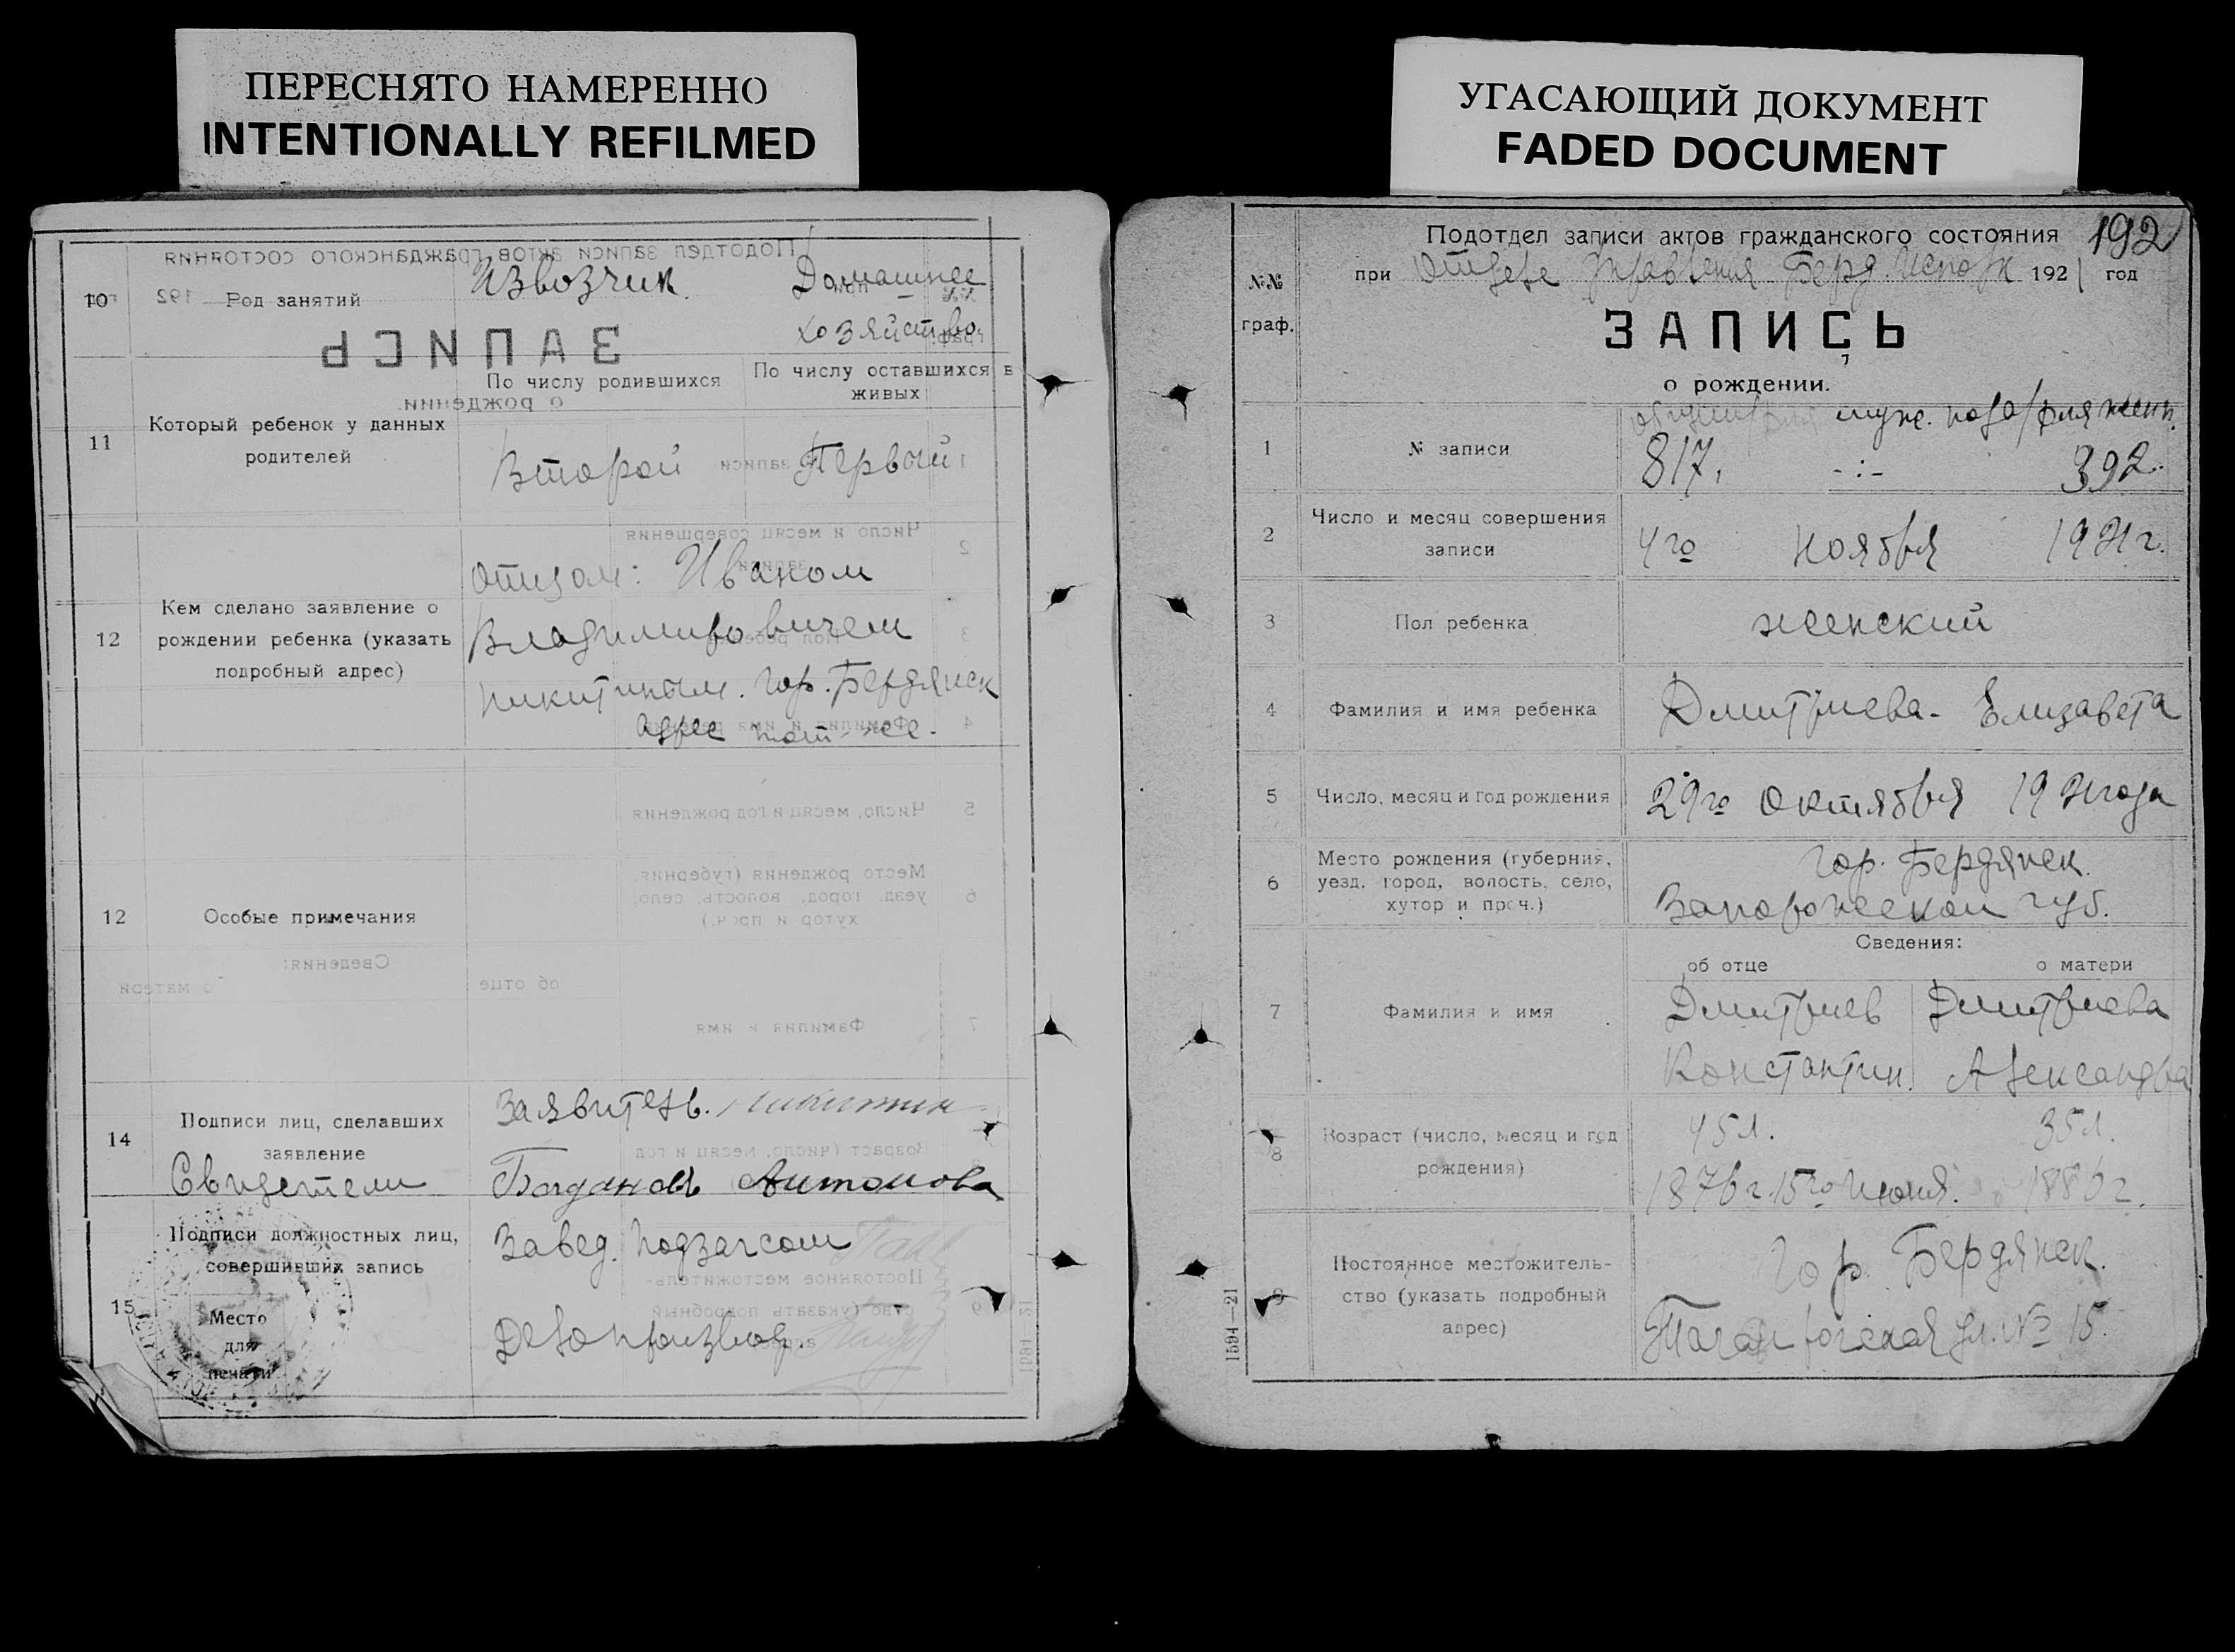 ПЕРЕСНЯТО НАМЕРЕННО
INTENTIONALLY REFILMED
10
Род занятий
Извозчик.
Домашнее
хозяйство.
11
Который ребенок у данных
родителей
По числу родившихся
По числу оставшихся в
живых
Второй
Первый
12
Кем сделано заявление о
рождении ребенка (указать
подробный адрес)
отцом: Иваном
Владимировичем
Никитиным. Гор. Бердянск
адрес тот-же.
12
Особые примечания
14
Подписи лиц, сделавших
заявление
Свидетели
Заявитель.
Богдановъ Антонова
15
Подписи должностных лиц,
совершивших запись
Место
для
печати
Завед. подзагсом
Делопроизвод.
УГАСАЮЩИЙ ДОКУМЕНТ
FADED DOCUMENT
192
№№
граф.
Подотдел записи актов гражданского состояния
при Отделе Управления Берд. Исполк 1921 год
ЗАПИСЬ
о рождении.
1
№ записи
муж. пола для женн.
817. -:- 392.
2
Число и месяц совершения
записи
4го Ноября 1921 г.
3
Пол ребенка
женский
4
Фамилия и имя ребенка
Дмитриева - Елизавета
5
Число, месяц и год рождения
29го Октября 1921 года
6
Место рождения (губерния,
уезд, город, волость, село,
хутор и проч.)
Гор. Бердянск.
Запорожской губ.
Сведения:
об отце
о матери
7
Фамилия и имя
Дмитриев
Константин.
Дмитриева
Александра
8
Возраст (число, месяц и год
рождения)
45 л.
35 л.
1876 г. 15го Июня.
1886 г.
9
Постоянное местожитель-
ство (указать подробный
адрес)
Гор. Бердянск.
Таганрогская ул. № 15.
1594—21